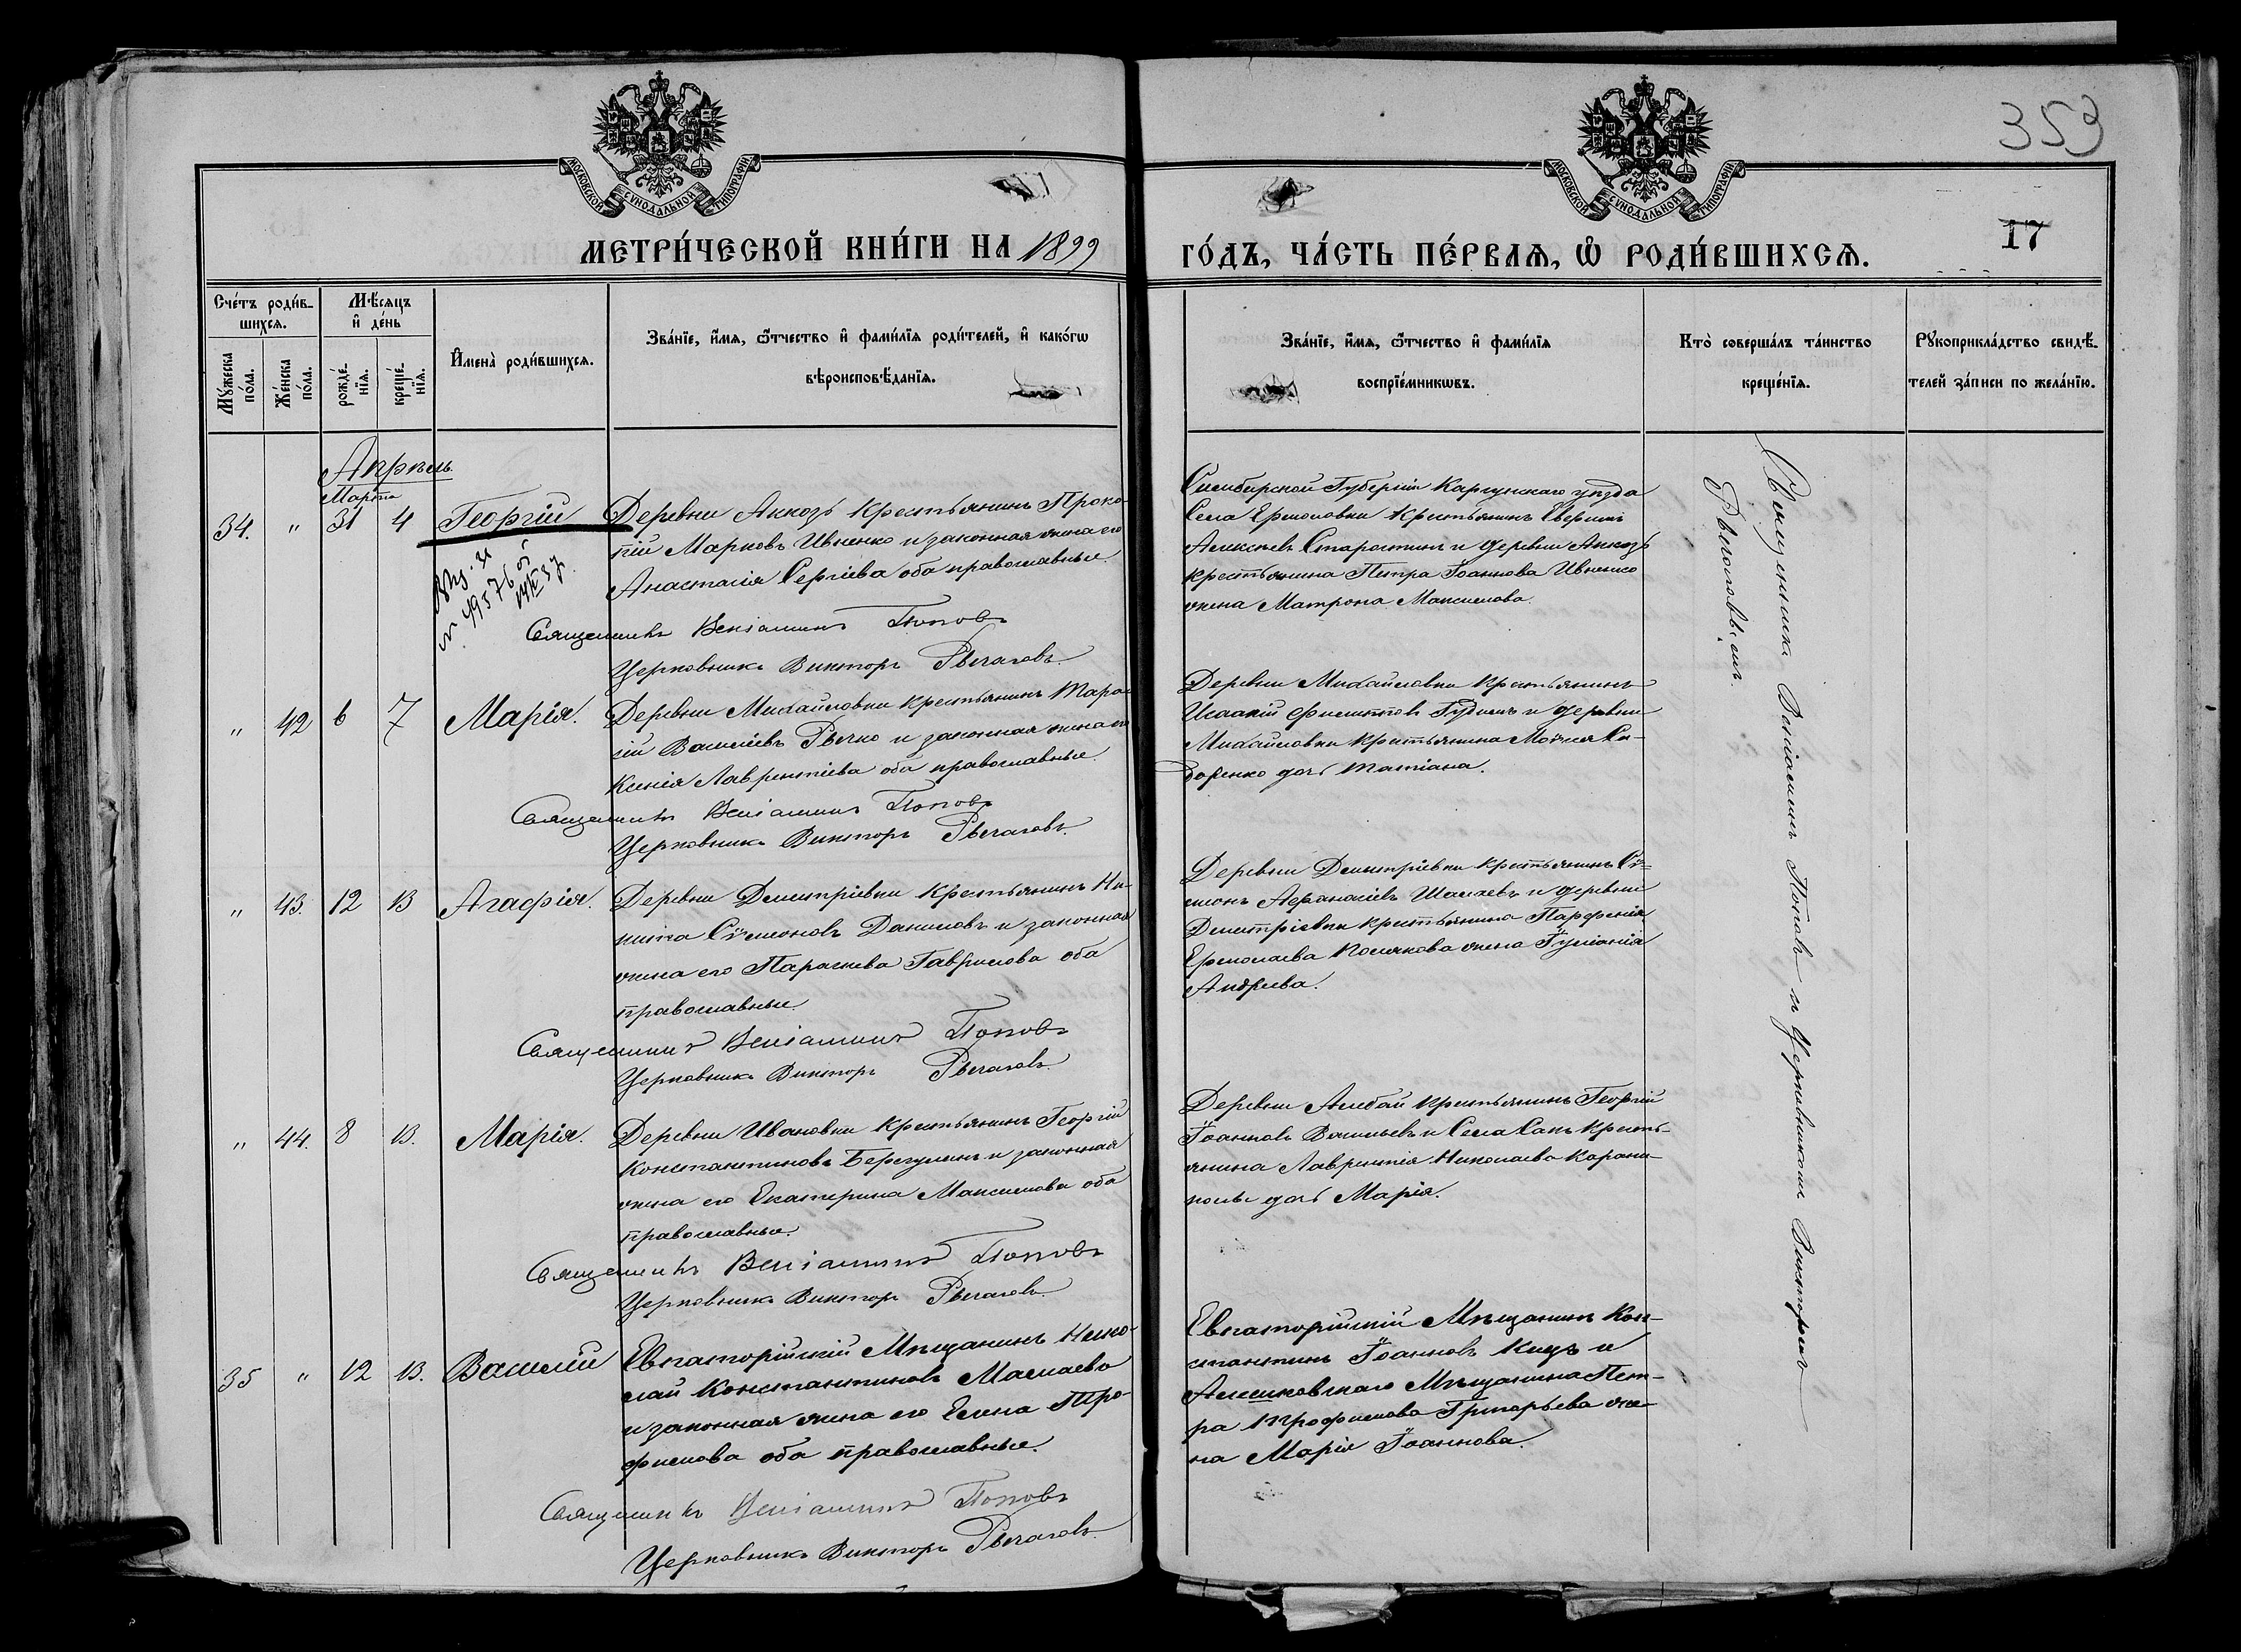 353
МОСКОВСКОЙ СѴНОДАЛЬНОЙ ТИПОГРАФІИ
МОСКОВСКОЙ СѴНОДАЛЬНОЙ ТИПОГРАФІИ
МЕТРИ́ЧЕСКОЙ КНИ́ГИ НА 1899
ГО́ДЪ, ЧА́СТЬ ПЕ́РВАЯ, Ѡ РОДИ́ВШИХСЯ.
17
Сче́тъ роди́в-
шихся.
Му́жеска по́ла.
Же́нска по́ла.
Мѣ́сяцъ
и де́нь
рожде́нїя.
креще́нїя.
Имена̀ роди́вшихся.
Зва́нїе, и́мя, ѻ́тчество и фами́лїя роди́телей, и како́гѡ
вѣроисповѣ́данїя.
Зва́нїе, и́мя, ѻ́тчество и фами́лїя
воспрїе́мникѡвъ.
Кто̀ соверша́лъ та́инство
креще́нїя.
Рꙋкоприкла́дство свидѣ́-
телей за́писи по жела́нїю.
Апрѣль.
Марта
34. " 31 4 Георгій
Деревни Аккозъ крестьянинъ Проко-
пій Марковъ Ивненко и законная жена его
Анастасія Сергіева оба православные.
Священникъ Веніаминъ Поповъ
Церковникъ Викторъ Рычаговъ.
Симбирской Губерніи Карсунскаго уѣзда
Села Ермоловки крестьянинъ
Алексѣевъ Старостинъ и деревни Аккозъ
крестьянина Петра Іоаннова Ивненко
жена Матрона Максимова.
" 42 6 7 Марія.
Деревни Михайловки крестьянинъ
Васильевъ Рычко и законная жена его
Ксенія Лаврентіева оба православные.
Священникъ Веніаминъ Поповъ
Церковникъ Викторъ Рычаговъ.
Деревни Михайловки крестьянинъ
Исаакій Филипповъ и деревни
Михайловки крестьянина Моѵсея Си-
доренко дочь Татіана.
" 43. 12 13 Агафія.
Деревни Димитріевки крестьянинъ Ни-
кита Сѵмеоновъ Даниловъ и законная
жена его Параскева Гаврилова оба
православные.
Священникъ Веніаминъ Поповъ
Церковникъ Викторъ Рычаговъ.
Деревни Димитріевки крестьянинъ Сѵ-
меонъ Афанасіевъ Шалаевъ и деревни
Димитріевки крестьянина Парфенія
Ермолаева Полякова жена Іуліанія
Андреева.
" 44. 8 13. Марія.
Деревни Ивановки крестьянинъ Георгій
Константиновъ и законная
жена его Екатерина Максимова оба
православные.
Священникъ Веніаминъ Поповъ
Церковникъ Викторъ Рычаговъ.
Деревни крестьянинъ Георгій
Іоанновъ Васильевъ и Села Сакъ кресть-
янина Лаврентія Николаева
дочь Марія.
35 " 12 13. Василій
Евпаторійскій Мѣщанинъ Нико-
лай Константиновъ
и законная жена его Елена Тро-
фимова оба православные.
Священникъ Веніаминъ Поповъ
Церковникъ Викторъ Рычаговъ.
Евпаторійскій Мѣщанинъ Кон-
стантинъ Іоанновъ и
Алешковскаго Мѣщанина Пет-
ра Трофимова Григорьева же-
на Марія Іоаннова.
Священникъ Веніаминъ Поповъ и Церковникомъ Викторомъ
Рычаговымъ.